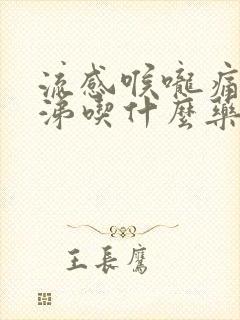 流感喉嚨痛
涕喫什麼藥
王長鷹